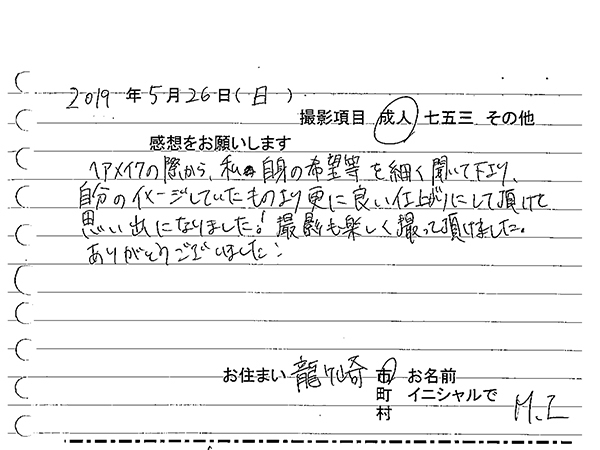 2019年5月26日(日)
撮影項目 成人 七五三 その他
感想をお願いします
ヘアメイクの際から、私自身の希望等を細く聞いて下より、
自分のイメージしていたものより更に良い仕上がりにして頂けて
思い出になりました!撮影も楽しく撮って頂けました。
ありがとうございました!
お住まい 龍ケ崎 市 お名前
町 イニシャルで
村 M.I